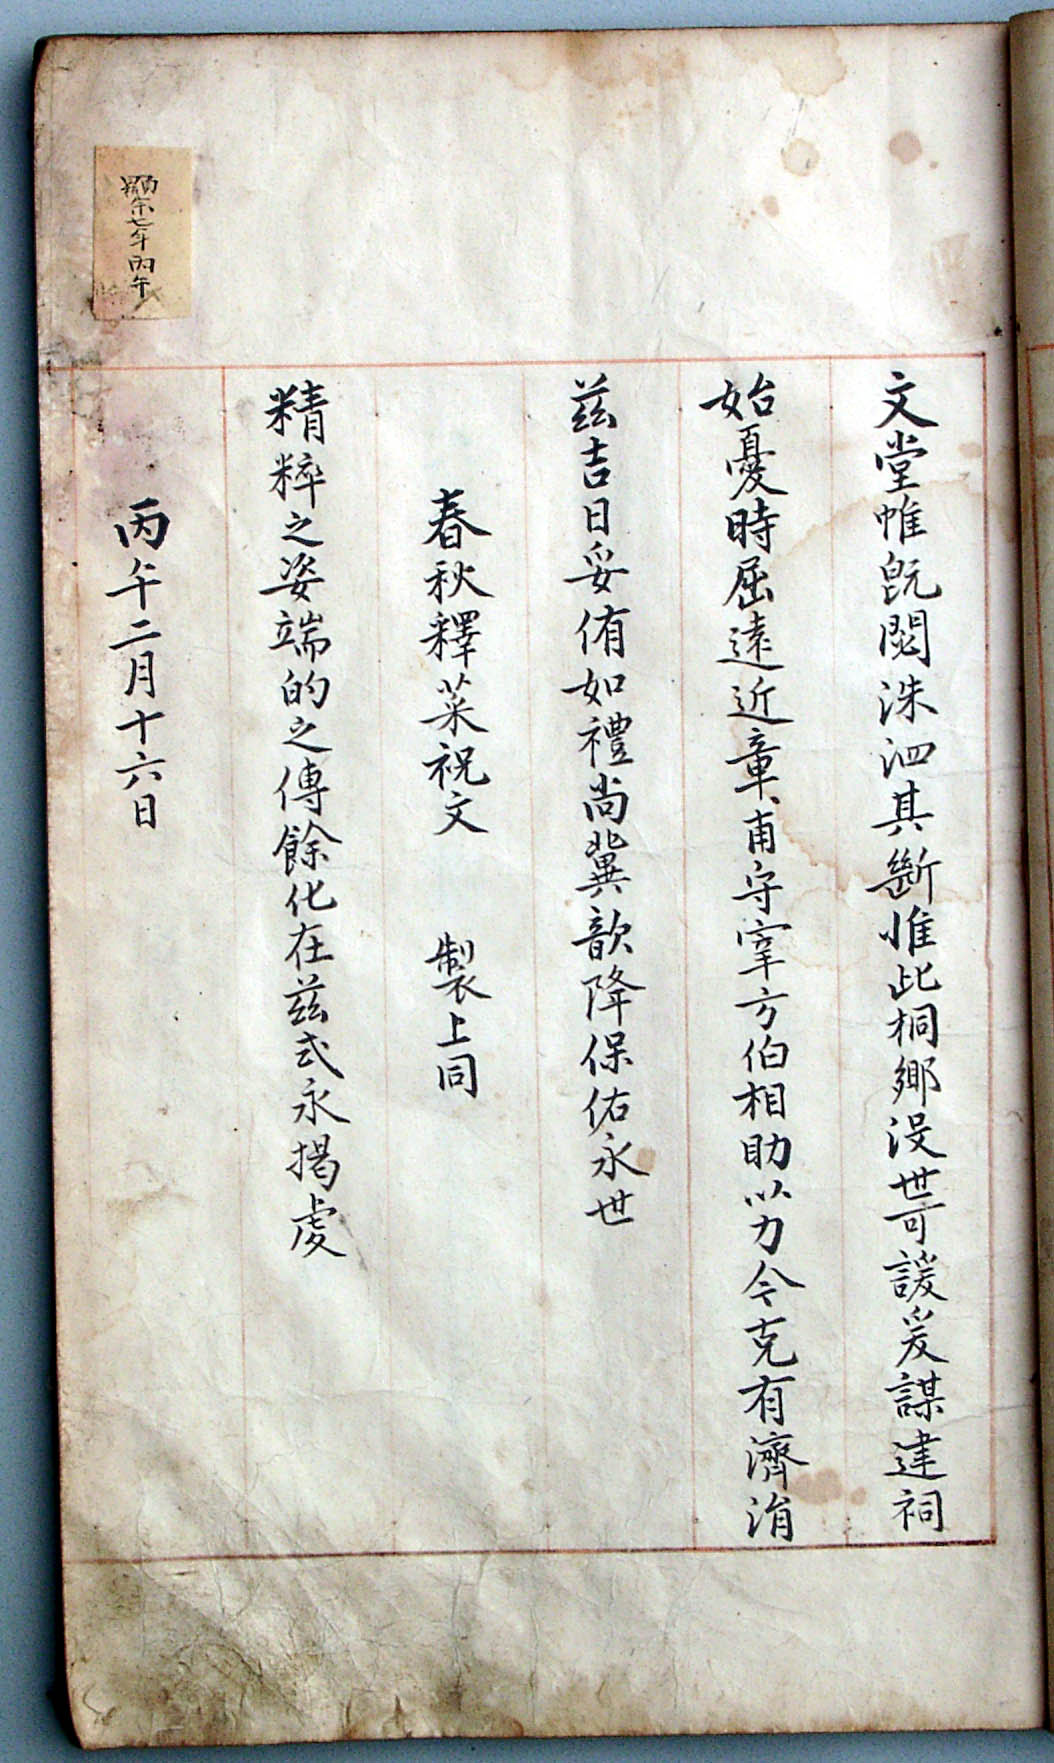 文堂帷旣閟洙泗其斷惟此桐鄕沒世可諼爰謀建祠
始憂時屈遠近章甫守宰方伯相助以力今克有濟涓
茲吉日妥侑如禮尚冀歆降保佑永世
春秋釋菜祝文 製上同
精粹之姿端的之傳餘化在茲式永揭虔
丙午二月十六日
顯宗七年丙午